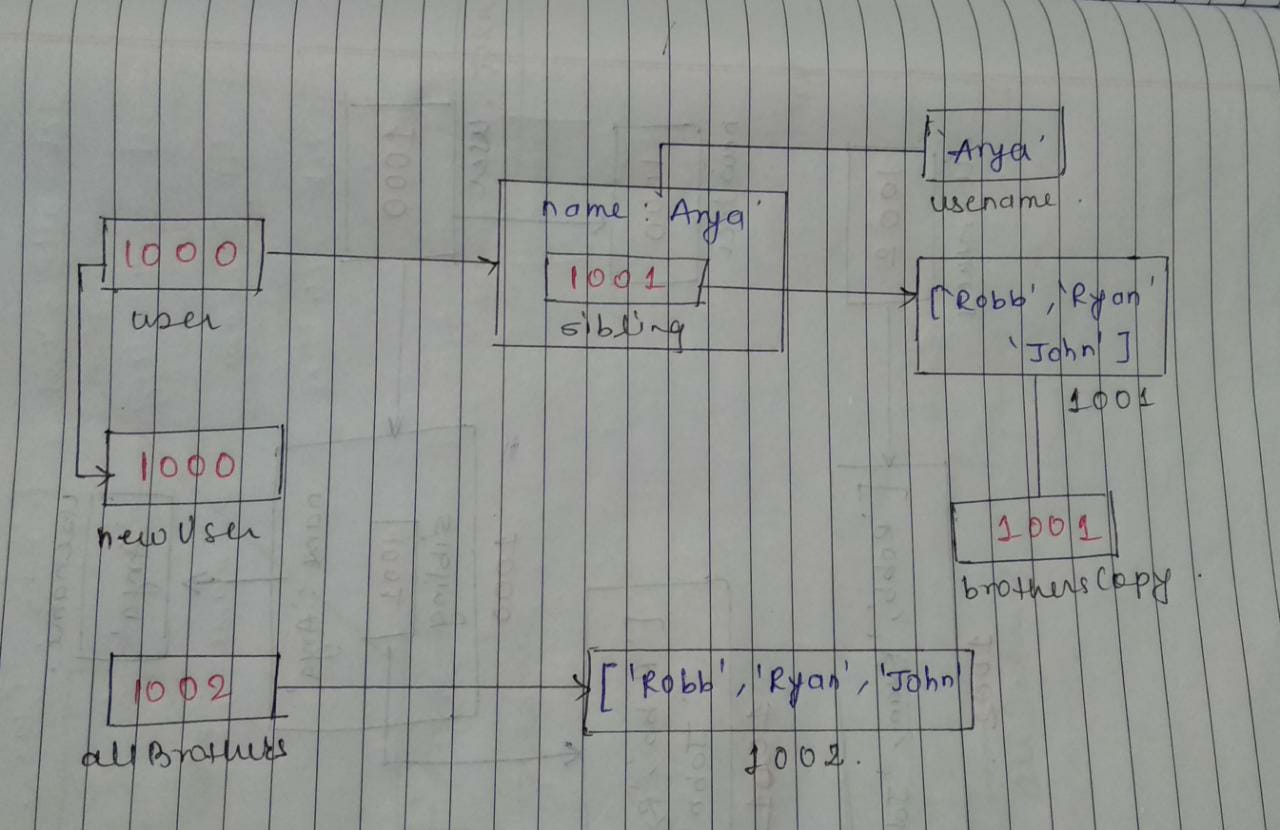 'Arya'
usename.
name : 'Arya'
1000
user
1001
sibling
['Robb', 'Ryan'
'John' ]
1001
1000
newUser
1001
brothersCopy.
1002
allBrothers
['Robb', 'Ryan', 'John'
1002.